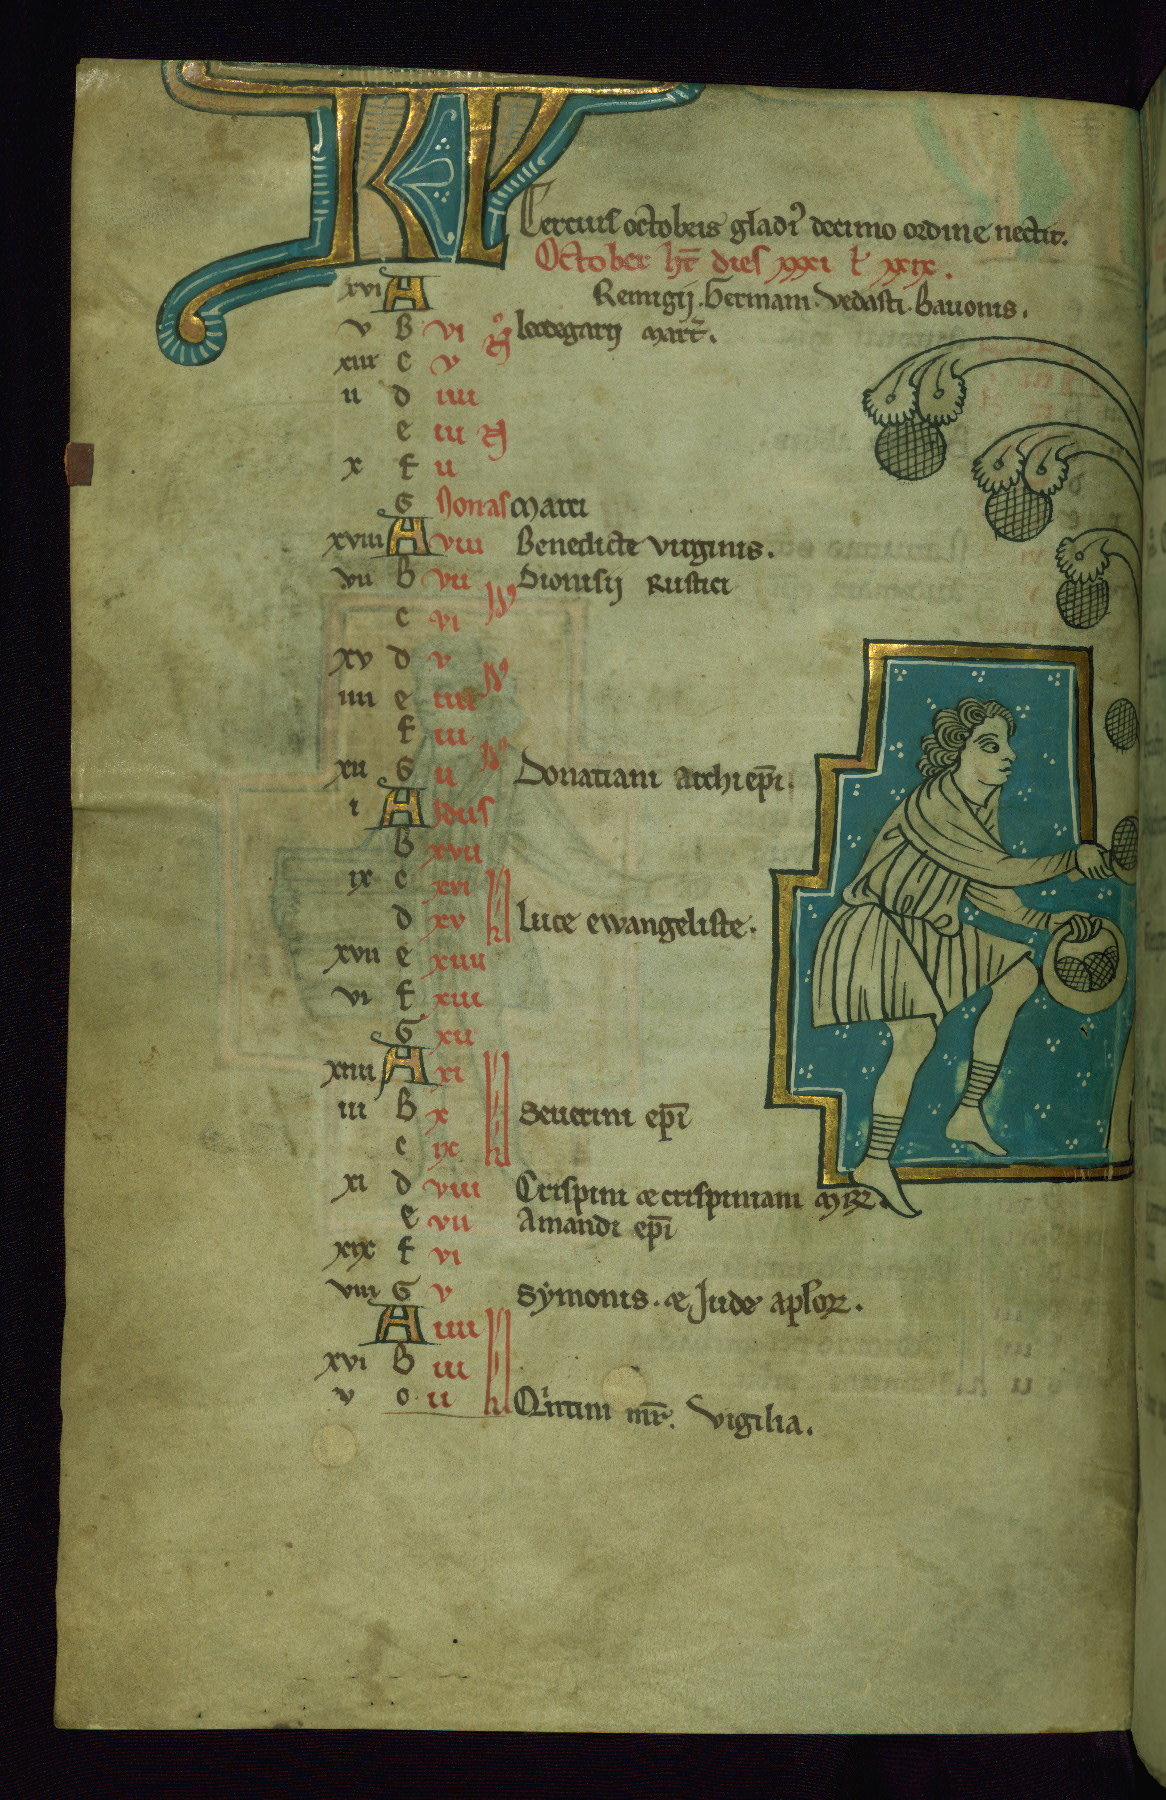 KL
Tercius octobris gladi' decimo ordine nectit.
October ht dies xxxi l xxix.
xvi A Remigij. Germani. Vedasti. Bauonis.
v B vi No leodegarij mart.
xiii c v
ii d iiii
e iii N
x f ii
G Nonas Marci
xviii A viii Benedicte virginis.
vii B vii Dionisij Rustici
c vi
xv d v
iiii e iiii
f iii
xii G ii Donatiani archiepi.
i A Idus
B xvii
ix c xvi
d xv Luce ewangeliste.
xvii e xiiii
vi f xiii
G xii
xiiii A xi
iii B x Seuerini epi
c ix
xi d viii Crispini & crispiniani mr.
e vii Amandi epi
xix f vi
viii G v Symonis. & Jude aplor.
A iiii
xvi B iii
v o ii Quintini mr. Vigilia.